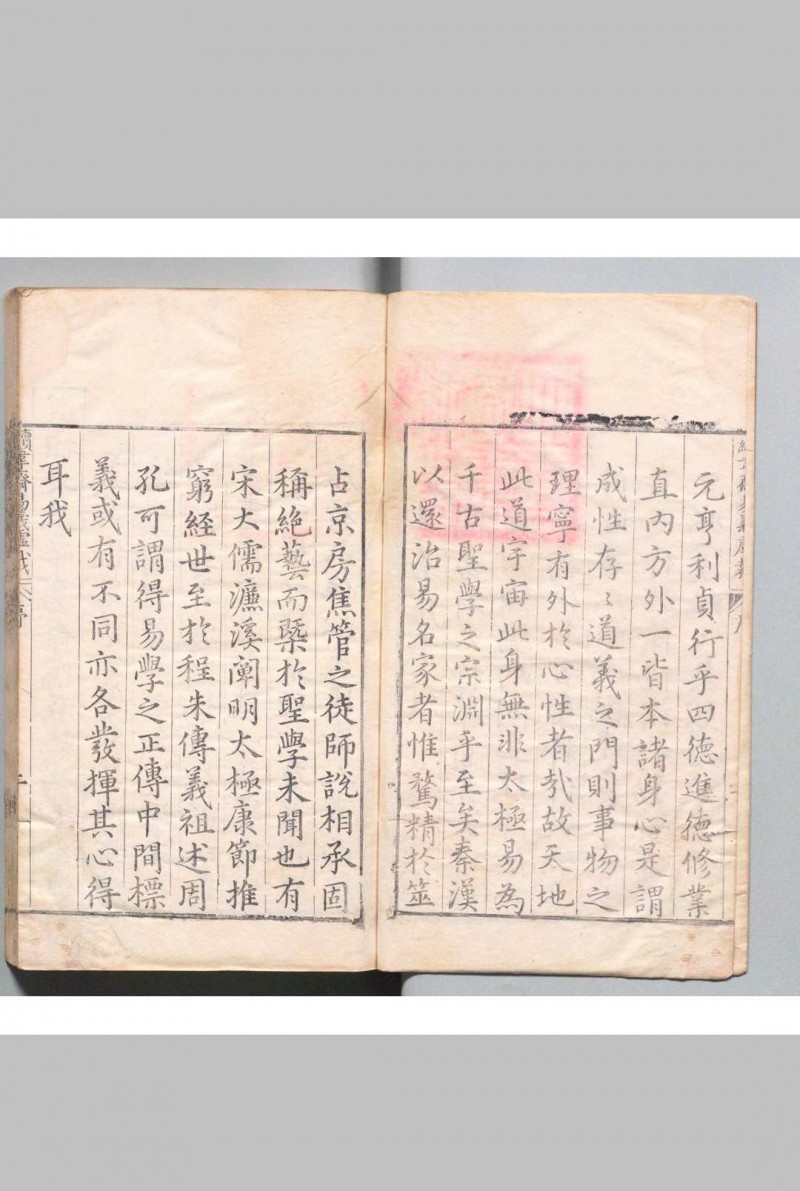 元亨利貞行乎四德進德修業
直內方外一皆本諸身心是謂
成性存〻道義之門則事物之
理寧有外於心性者㦲故天地
此道宇宙此身無非太極易為
千古聖學之宗淵乎至矣秦漢
以還治易名家者惟騖精於筮
占京房焦管之徒師說相承固
稱絶藝而槩於聖學未聞也有
宋大儒濂溪闡明太極康節推
窮經世至於程朱傳義祖述周
孔可謂得易學之正傳中間標
義或有不同亦各發揮其心得
耳我